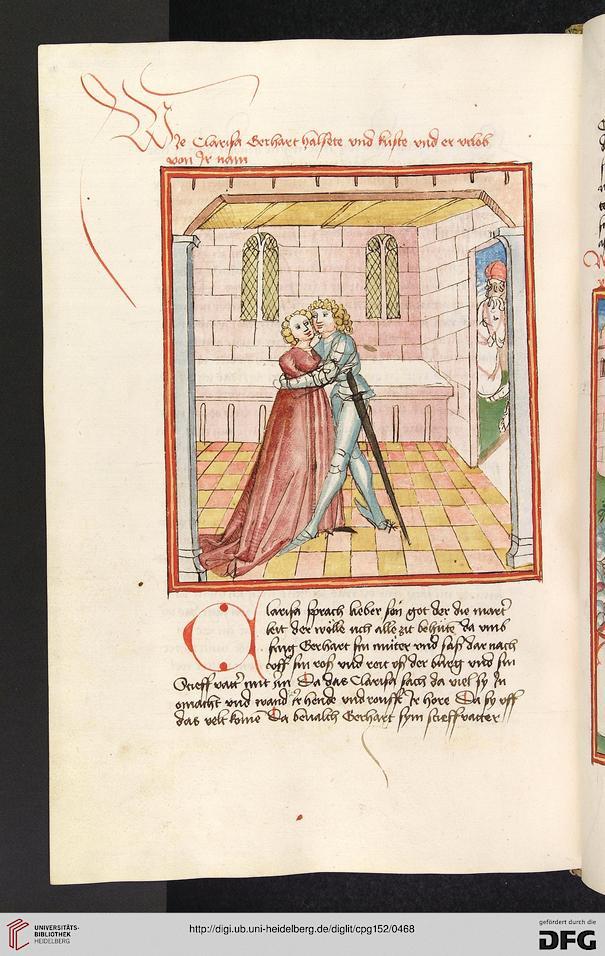 Wie Clarisa Gerhart halsete vnd kuste vnd er vrlob
von Jr nam
Clarisa sprach lieber son got der die mart
leit der wölle uch alle zit behüten da vmb
fing Gerhart sin müter vnd saß dar nach
vff sin roß vnd reit vß der burg vnd sin
Stieff vatter mit im Da das Clarisa sach da viel sy In
omacht vnd wand ir hende vnd rouffte Jr hore Da sy vff
das velt komen Da beualch Gerhart sym stieff vatter
UNIVERSITÄTS-
BIBLIOTHEK
HEIDELBERG
http://digi.ub.uni-heidelberg.de/diglit/cpg152/0468
gefördert durch die
DFG